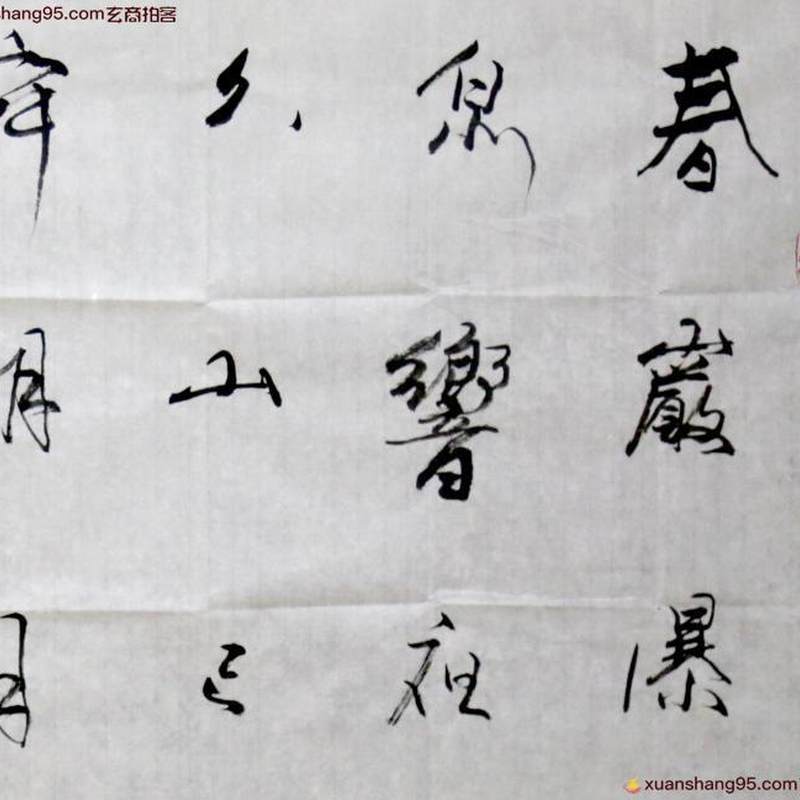 shang95.com玄商拍客
春巖瀑
泉響夜
久山已
明月
xuanshang95.com